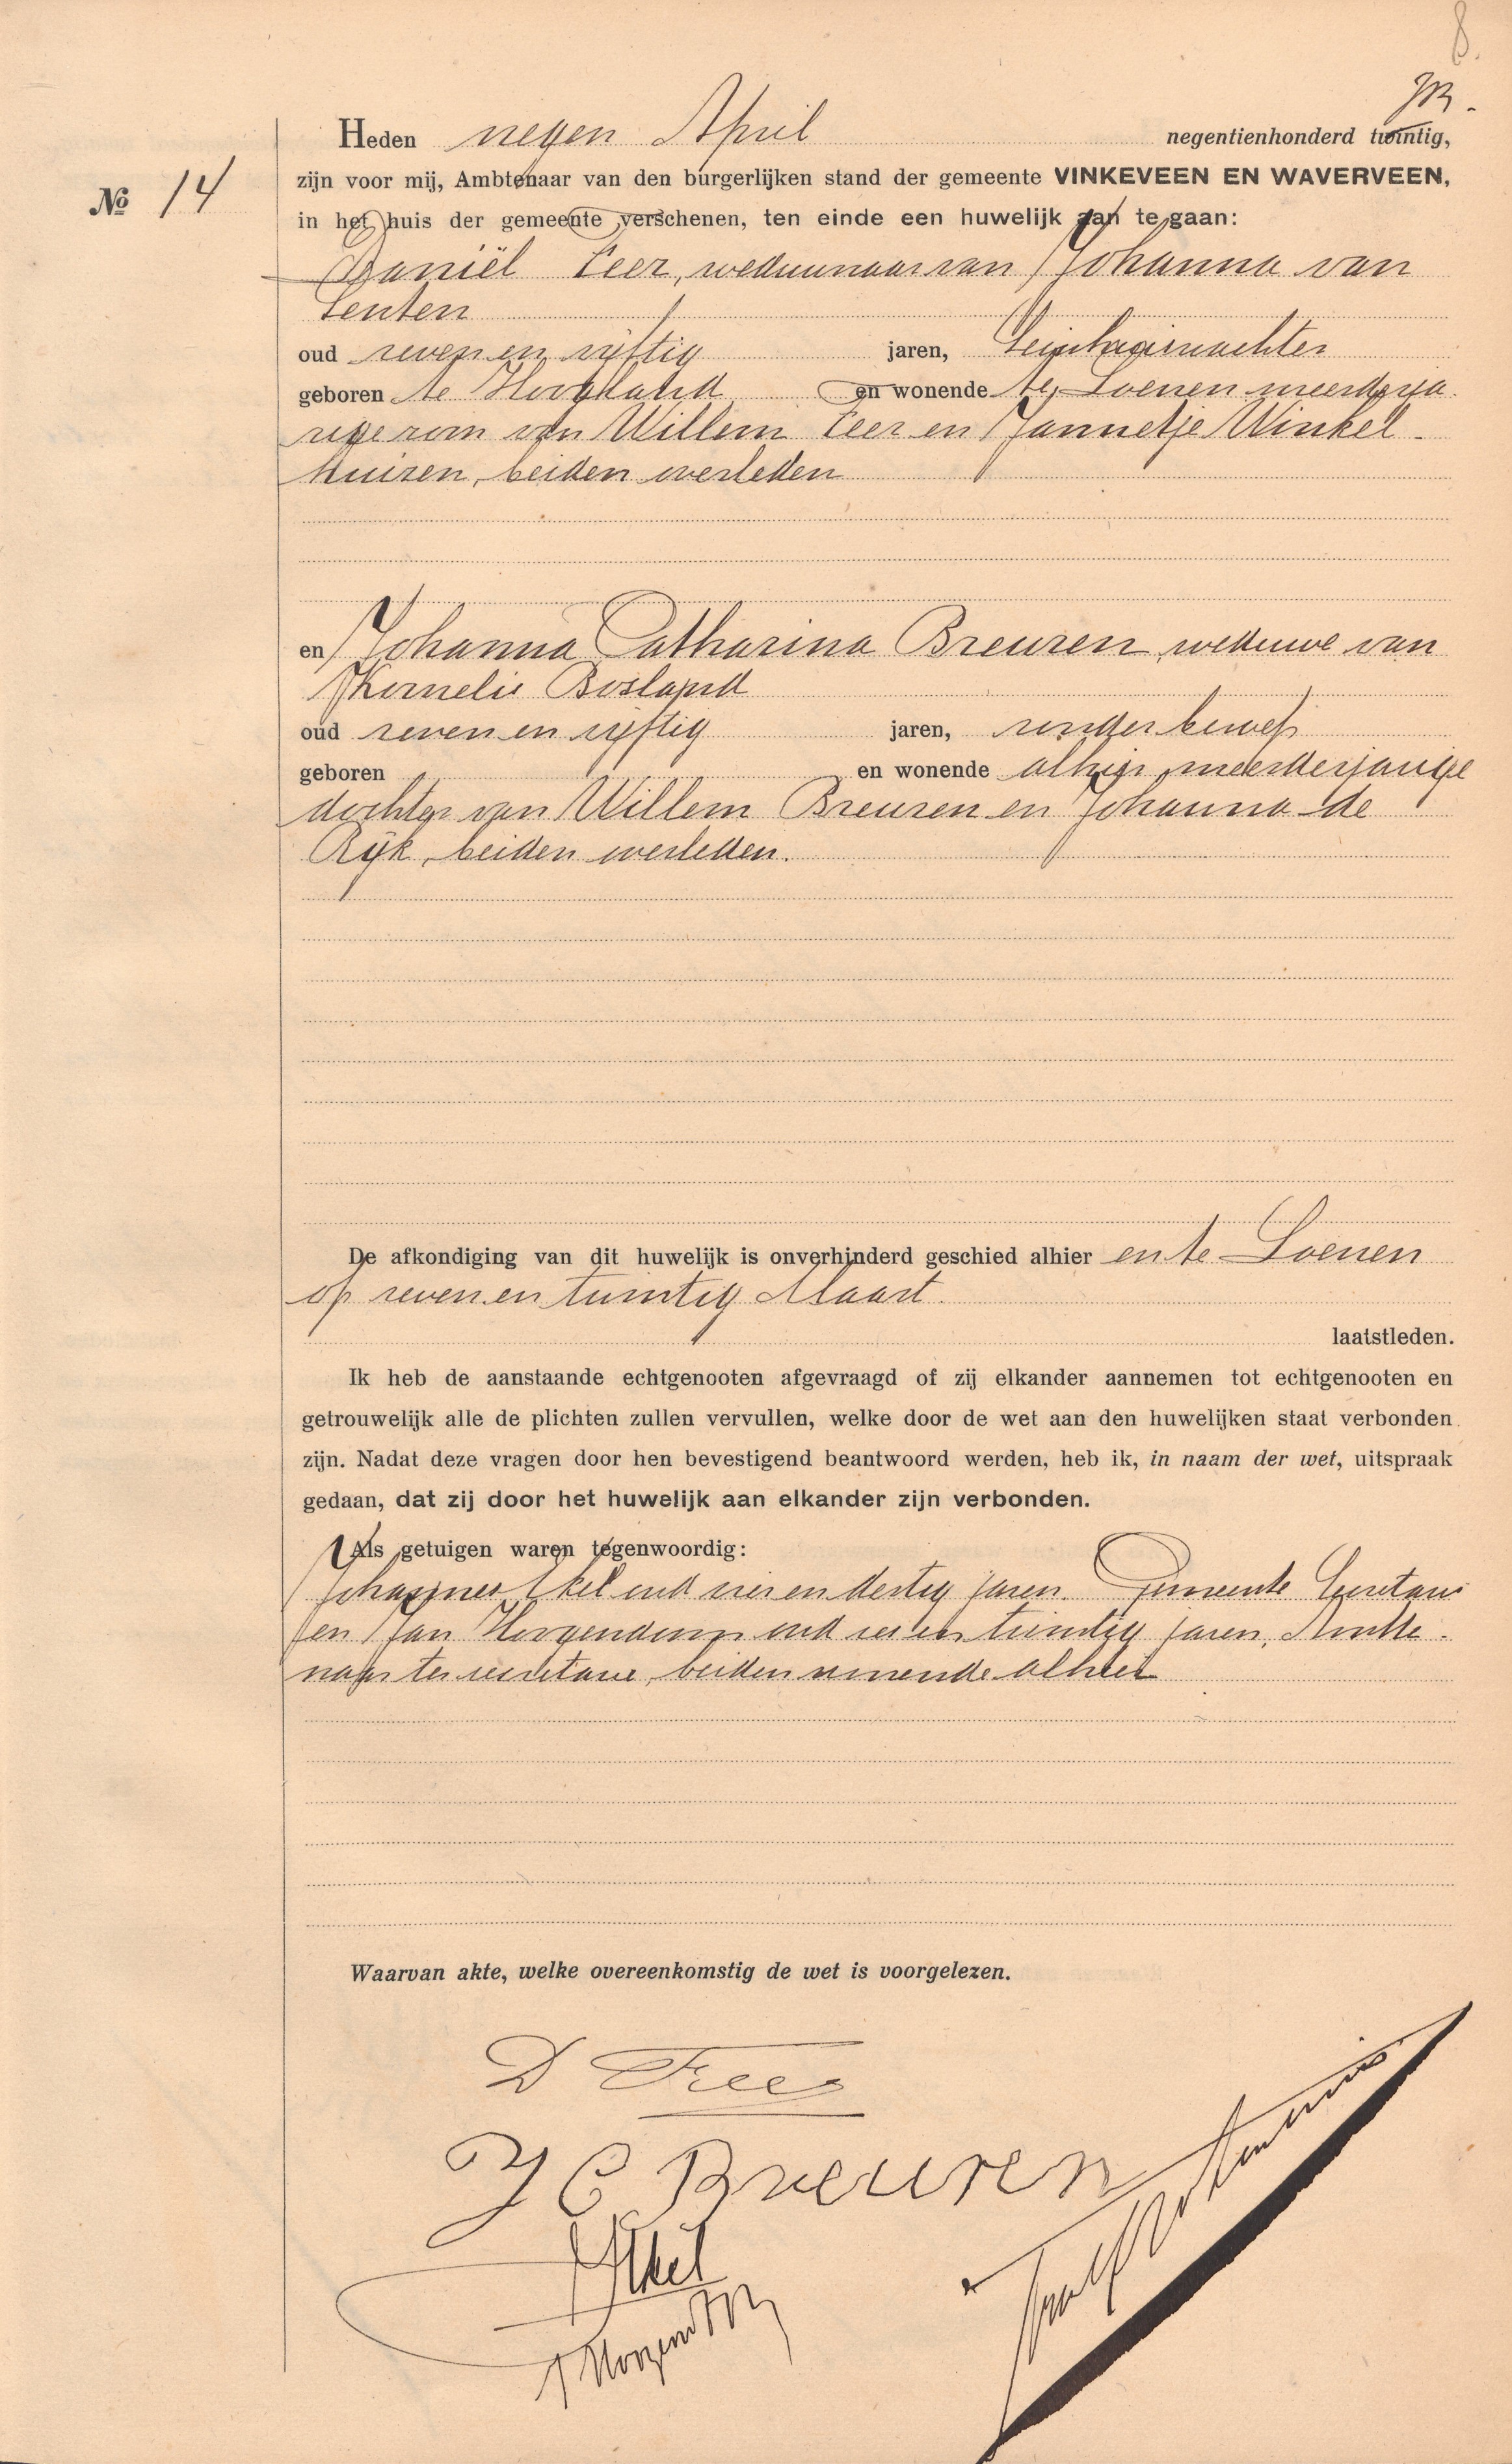 8.
Heden negen April negentienhonderd twintig,
zijn voor mij, Ambtenaar van den burgerlijken stand der gemeente VINKEVEEN EN WAVERVEEN,
No 14
in het huis der gemeente verschenen, ten einde een huwelijk aan te gaan:
Daniël Feer, weduwnaar van Johanna van
Lenten
oud zeven en vijftig jaren, Seinhuiswachter
geboren te Hoogland en wonende te Loenen meerderja-
rige zoon van Willem Feer en Jannetje Winkel-
huizen, beiden overleden
en Johanna Catharina Breuren, weduwe van
Kornelis Bosland
oud zeven en vijftig jaren, zonder beroep
geboren en wonende alhier, meerderjarige
dochter van Willem Breuren en Johanna de
Rijk, beiden overleden.
De afkondiging van dit huwelijk is onverhinderd geschied alhier en te Loenen
op zeven en twintig Maart.
laatstleden.
Ik heb de aanstaande echtgenooten afgevraagd of zij elkander aannemen tot echtgenooten en
getrouwelijk alle de plichten zullen vervullen, welke door de wet aan den huwelijken staat verbonden
zijn. Nadat deze vragen door hen bevestigend beantwoord werden, heb ik, in naam der wet, uitspraak
gedaan, dat zij door het huwelijk aan elkander zijn verbonden.
Als getuigen waren tegenwoordig:
Johannes Ekel oud vier en dertig jaren. Gemeente Secretaris
en Jan Hoogendoorn oud zes en twintig jaren, Ambte-
naar ter secretarie, beiden wonende alhier
Waarvan akte, welke overeenkomstig de wet is voorgelezen.
D Feer
J C Breuren
JEkel
J Hoogendoorn